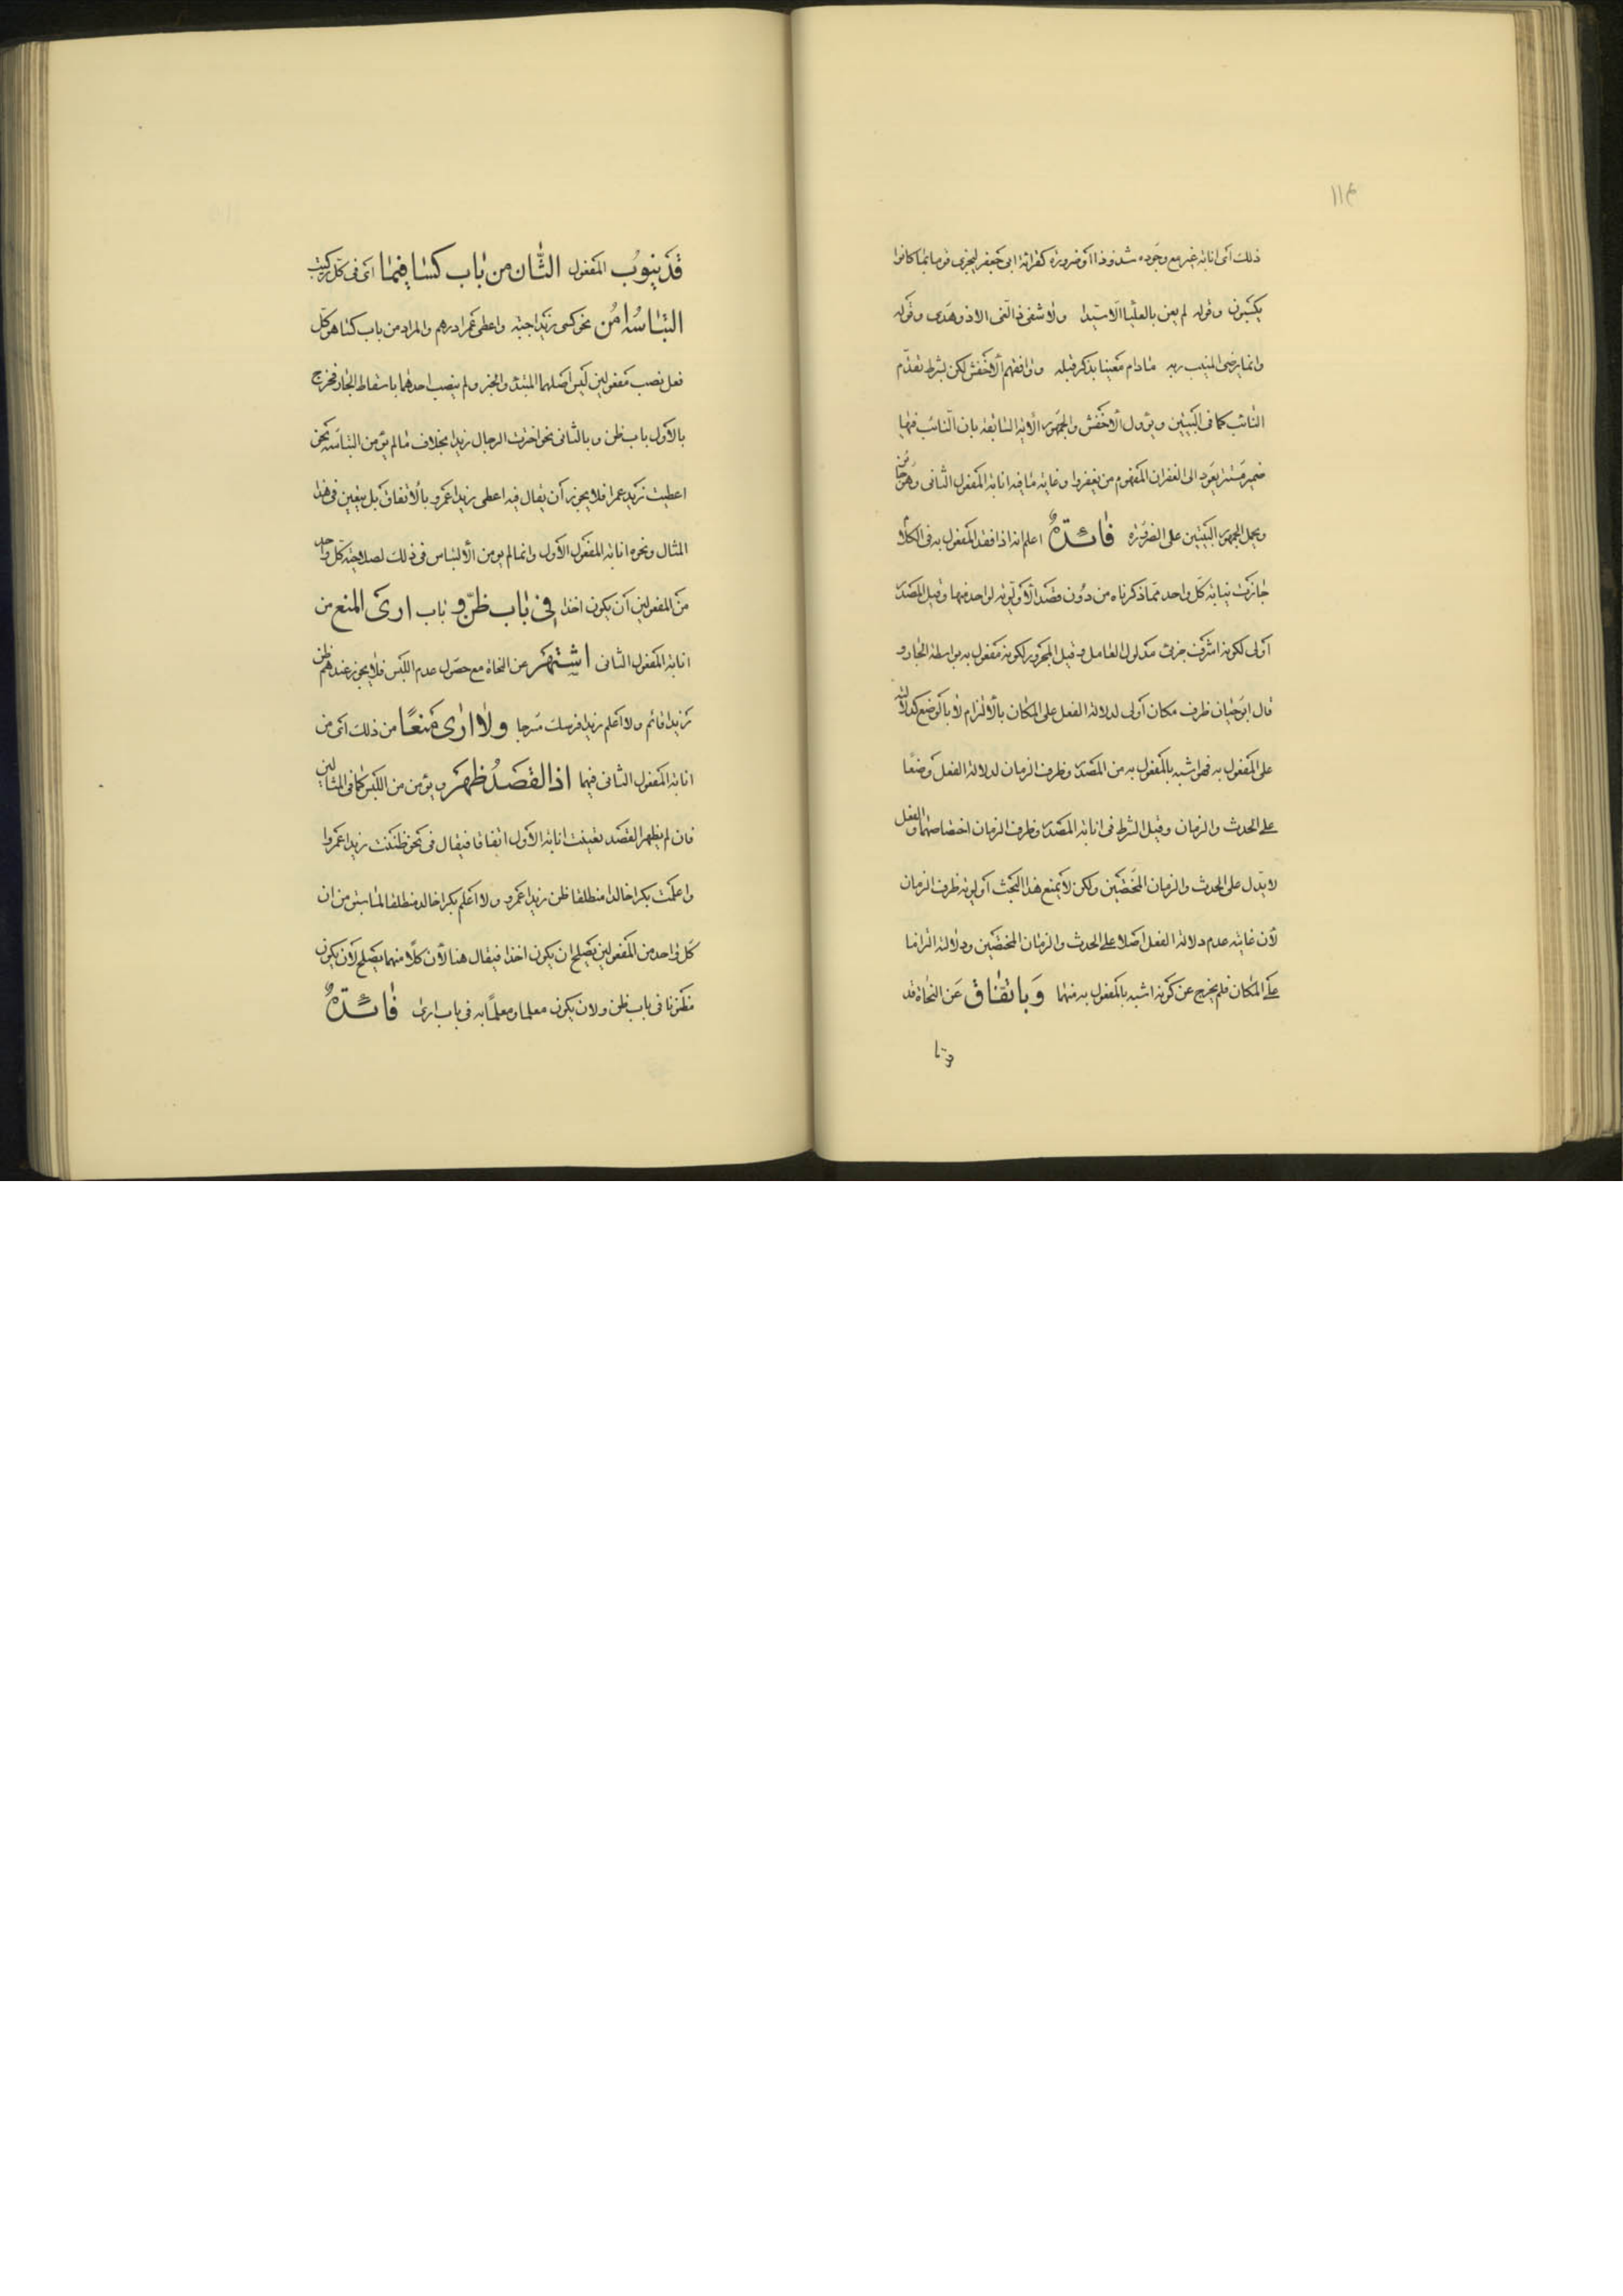 ١١٤
ذلك اى انابة غير مع وجوده شذوذا او ضرورة كقراءة ابى جعفر ليجزى قوما بما كانوا
يكسبون وقوله لم يعن بالعلياء الا سيدا ولا شفى ذا الغى الا ذو هدى وقوله
وانما يرضى المنيب ربه مادام معنيا بذكر قبله ووافقهم الأخفش لكن بشرط تقدّم
النائب كما فى البيتين ويؤول الأخفش والجمهور الآية السابقة بان النائب فيها
ضمير مستتر يعود الى الغفران المفهوم من يغفروا وغاية ما فيه انابة المفعول الثانى وهو جائز
ويحمل الجمهور البيتين على الضرورة فائدةٌ اعلم انه اذا فقد المفعول به فى الكلام
جازت نيابة كل واحد مما ذكرناه من دون قصد الأولوية لواحد منها وقيل المصدر
اولى لكونه اشرف جزئى مدلول العامل وقيل المجرور لكونه مفعول به بواسطة الجار و
قال ابو حيان ظرف مكان اولى لدلالة الفعل على المكان بالألتزام لا بالوضع كدلالته
على المفعول به فهو اشبه بالمفعول به من المصدر وظرف الزمان لدلالة الفعل وضعًا
على الحدث والزمان وقيل الشرط فى انابة المصدر وظرف الزمان اختصاصهما والفعل
لا يدل على الحدث والزمان المختصّين ولكن لا يمنع هذا البحث اولوية ظرف الزمان
لأن غايته عدم دلالة الفعل اصلا على الحدث والزمان المختصّين ودلالته التزاما
على المكان فلم يخرج عن كونه اشبه بالمفعول به منهما وَباتفاق عن النحاة قد
قَد ينوبُ المفعول الثّان من باب كسا فيما اى فى كل تركيب
التباسُه امُن نحو كسى زيدا جبّة واعطى عمرا درهم والمراد من باب كسا هو كل
فعل نصب مفعولين ليس اصلهما المبتدأ والخبر ولم ينصب احدهما باسقاط الجار فخرج
بالأول باب ظن وبالثانى نحو اخترت الرجال زيدا بخلاف ما لم يؤمن التباسه نحو
اعطيت زيدا عمرا فلا يجوز ان يقال فيه اعطى زيدا عمرو بالأتفاق بل يتعين فى هذا
المثال ونحوه انابة المفعول الأول وانما لم يؤمن الألتباس فى ذلك لصلاحية كل واحد
من المفعولين ان يكون اخذا فِى باب ظنّ و باب ارى المنع من
انابة المفعول الثانى اشتهَر عن النحاة مع حصول عدم اللبس فلا يجوز عندهم ظن
زيدا قائم ولا اعلم زيدا فرسك مسرجا ولا ارى منعًا من ذلك اى من
انابة المفعول الثانى فيهما اذا القصَدُ ظهَر ويؤمن من اللبس كما فى المثالين
فان لم يظهر القصد تعينت انابة الأول اتفاقا فيقال فى نحو ظننت زيدا عمروا
واعلمت بكرا خالدا منطلقا ظن زيدا عمرو ولا اعلم بكرا خالد منطلقا لما سبق من ان
كل واحد من المفعولين يصلح ان يكون اخذا فيقال هنا لأن كلا منهما يصلح لأن يكون
مظنونا فى باب ظن ولان يكون معلما ومعلمًا به فى باب ارى فائدةٌ